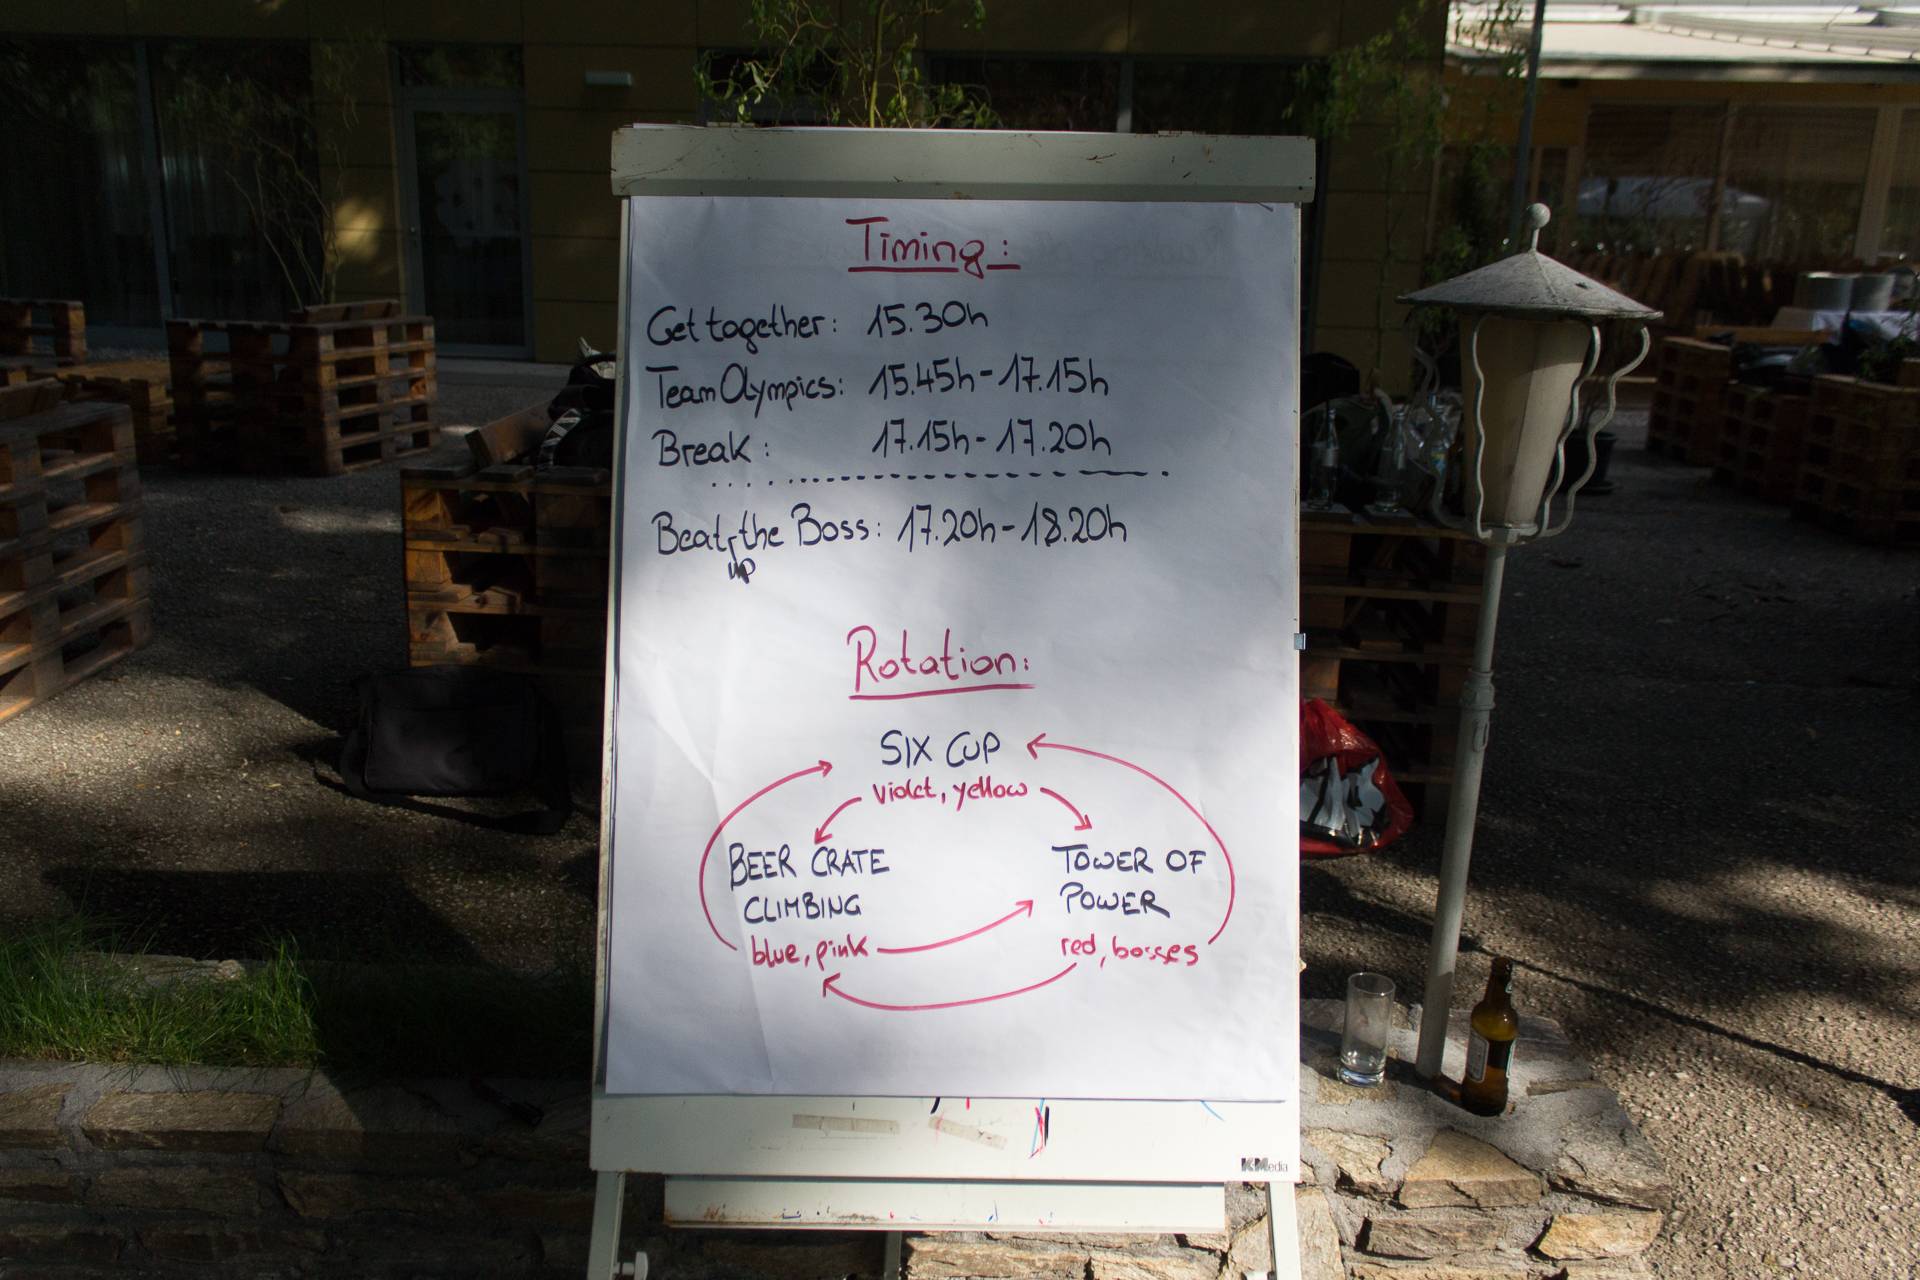 Timing:
Get together: 15.30h
Team Olympics: 15.45h - 17.15h
Break: 17.15h - 17.20h
Beat the Boss: 17.20h - 18.20h
up
Rotation:
SIX CUP
violet, yellow
BEER CRATE
CLIMBING
blue, pink
TOWER OF
POWER
red, bosses
KMedia